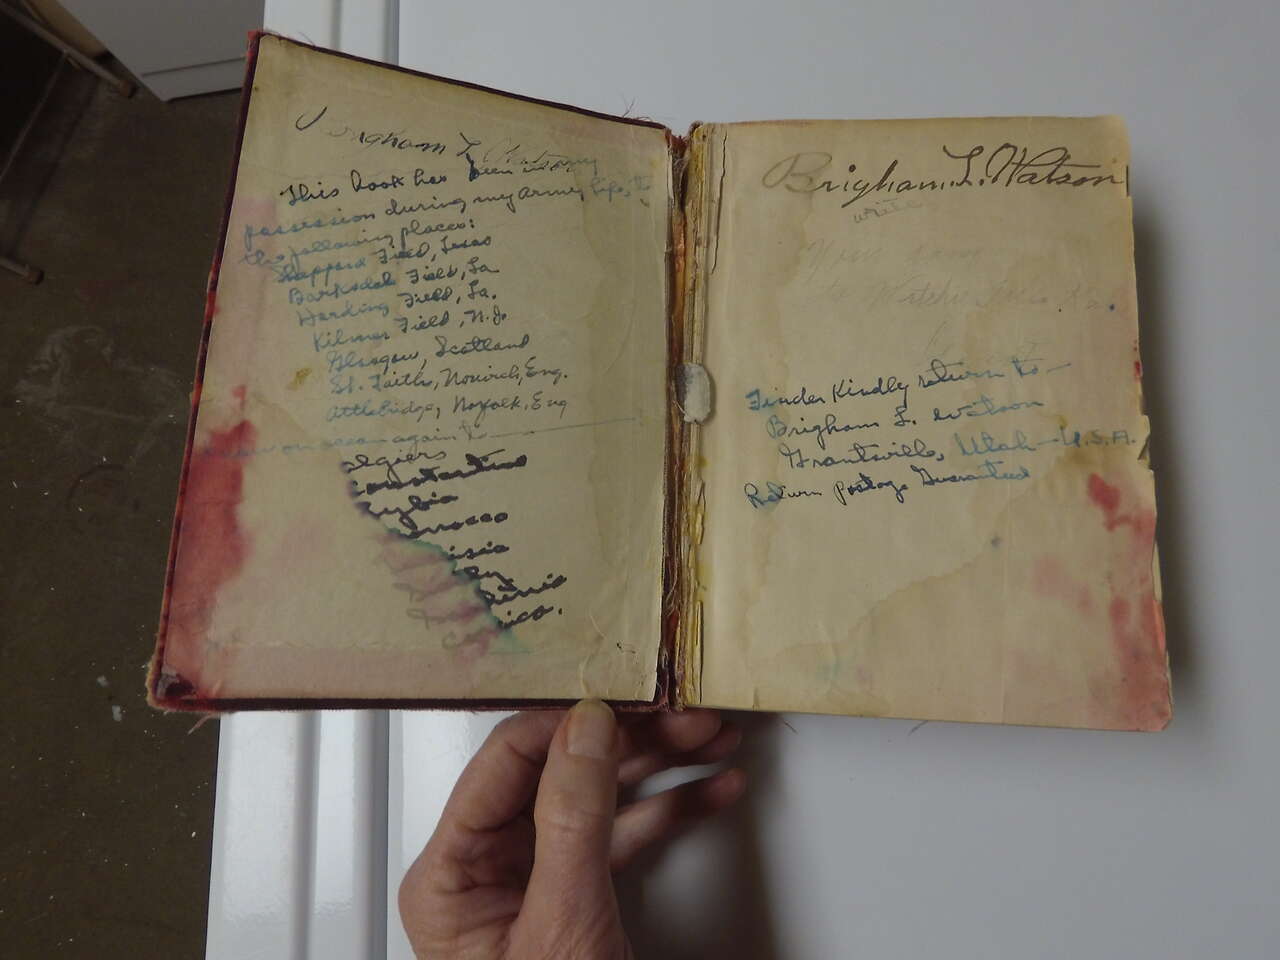 Brigham L. Watson
This book has been in my
possession during my army life, to
the following places:
Sheppard Field, Texas
Barksdale Field, La
Harding Field, La.
Kilmer Field, N.J.
Glasgow, Scotland
St. Faiths, Norwich, Eng.
Attlebridge, Norfolk, Eng
on ocean again to
Algiers
Constantine
Lybia
Morocco
Brigham L. Watson
write
Finder Kindly return to —
Brigham L. Watson
Grantsville, Utah — U.S.A.
Return postage Guaranteed